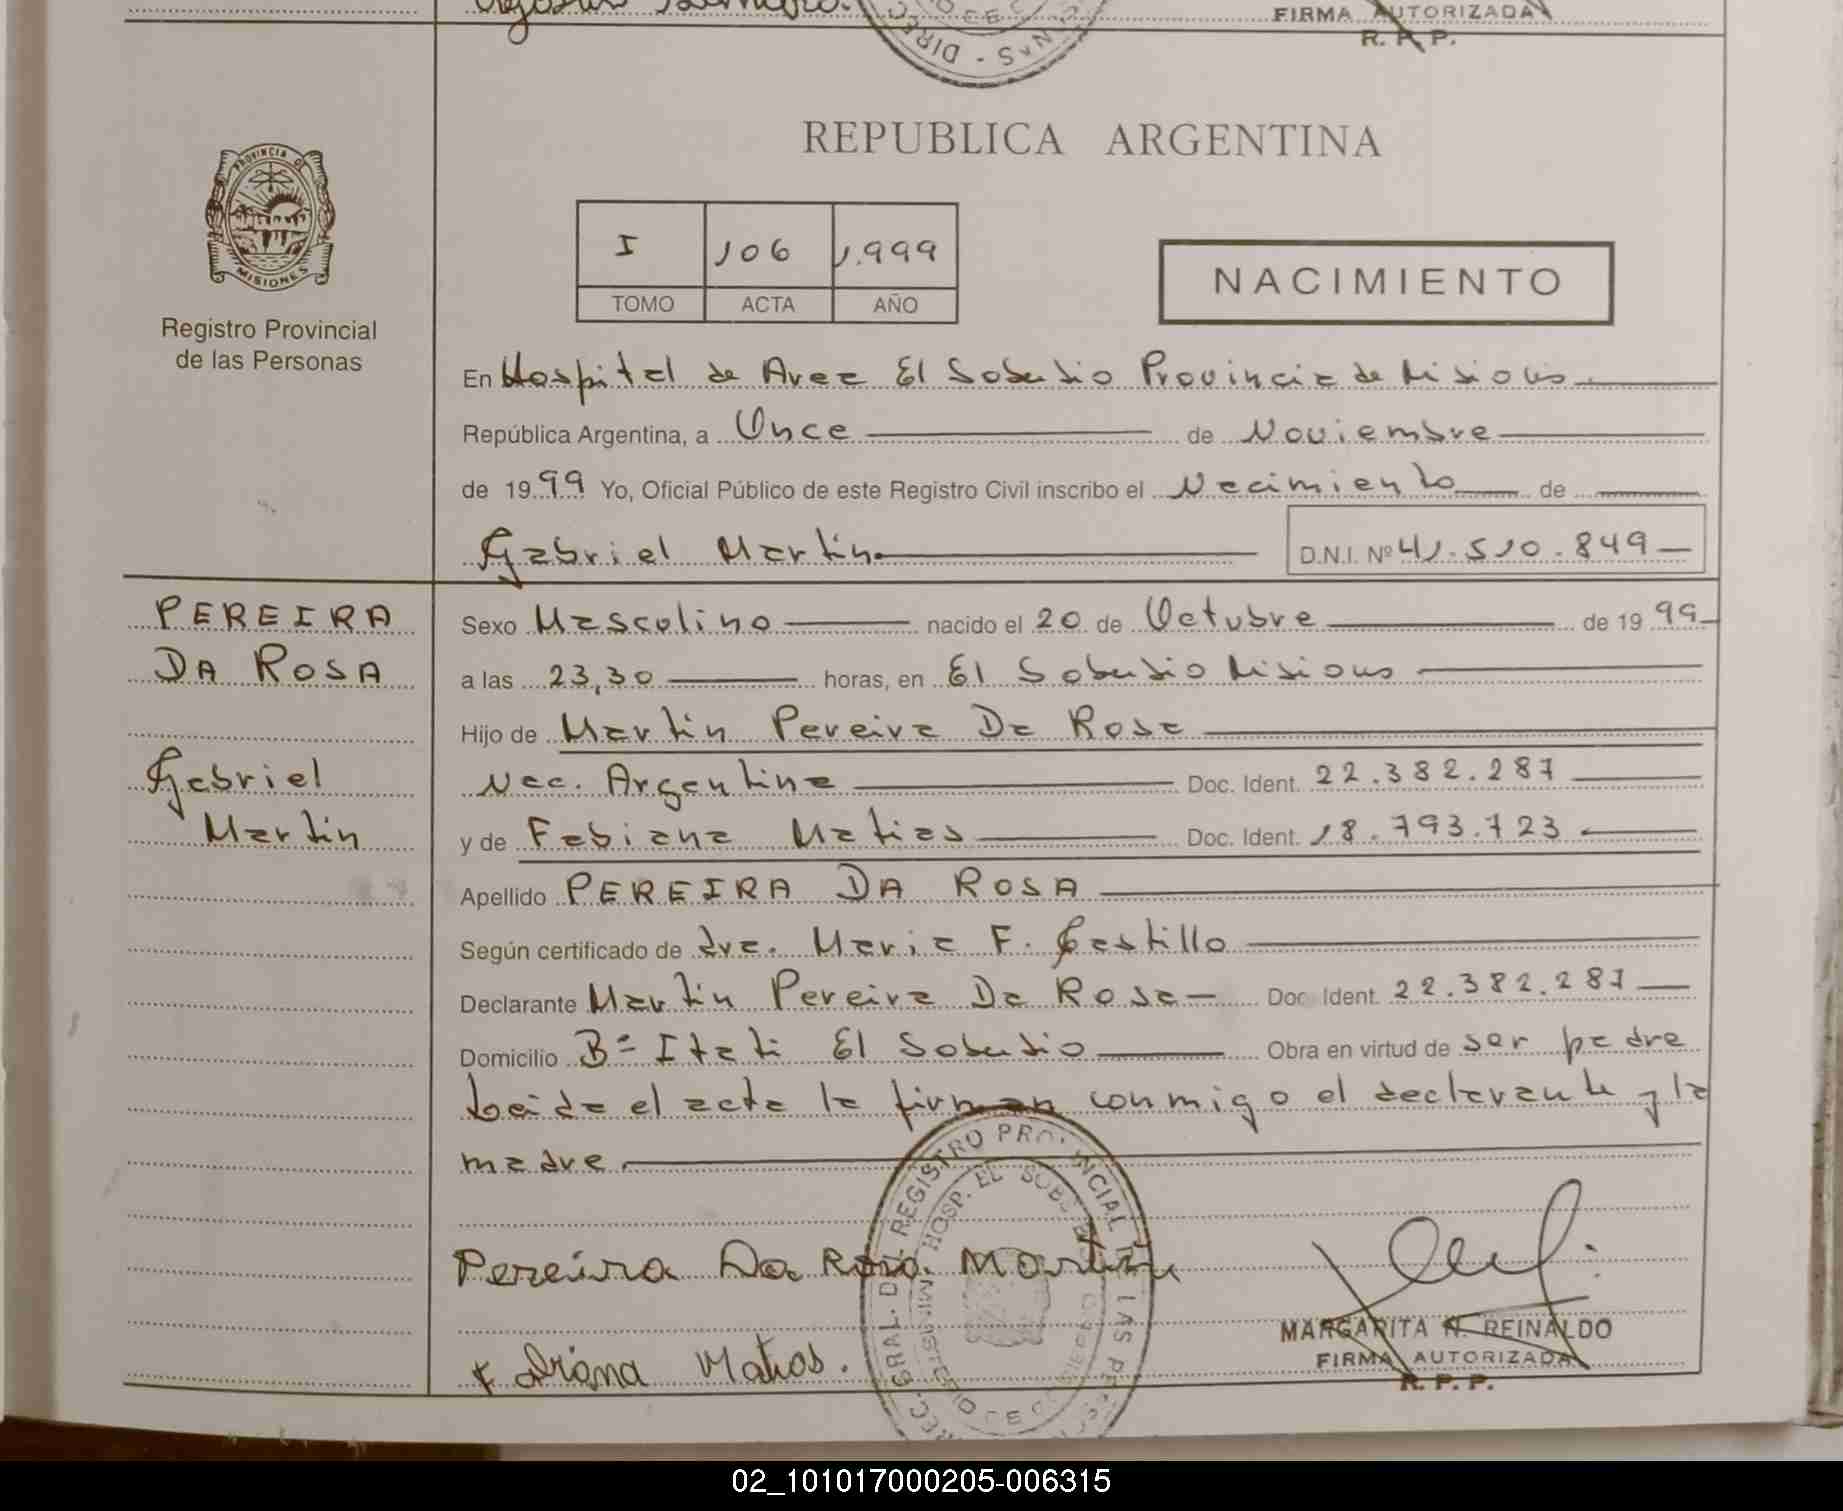 FIRMA AUTORIZADA
R. P. P.
DIREC
NAS
REPUBLICA ARGENTINA
PROVINCIA DE
MISIONES
I 106 1.999
TOMO ACTA AÑO
NACIMIENTO
Registro Provincial
de las Personas
En Hospital de Area El Soberbio Provincia de Misiones
República Argentina, a Once de Noviembre
de 1999 Yo, Oficial Público de este Registro Civil inscribo el Nacimiento de
Gabriel Martin D.N.I. Nº 41.510.849
PEREIRA
DA ROSA
Gabriel
Martin
Sexo Mascolino nacido el 20 de Octubre de 1999
a las 23,30 horas, en El Soberbio Misiones
Hijo de Martin Pereira Da Rosa
Nac. Argentina Doc. Ident. 22.382.287
y de Fabiana Matias Doc. Ident. 18.793.723
Apellido PEREIRA DA ROSA
Según certificado de dra. Maria F. Castillo
Declarante Martin Pereira Da Rosa Doc. Ident. 22.382.287
Domicilio Bº Itati El Soberbio Obra en virtud de ser padre
Leida el acta la firman conmigo el declarante y la
madre
Pereira Da Rosa Martin
Fabiana Matias.
MARGARITA N. REINALDO
FIRMA AUTORIZADA
R. P. P.
02_101017000205-006315